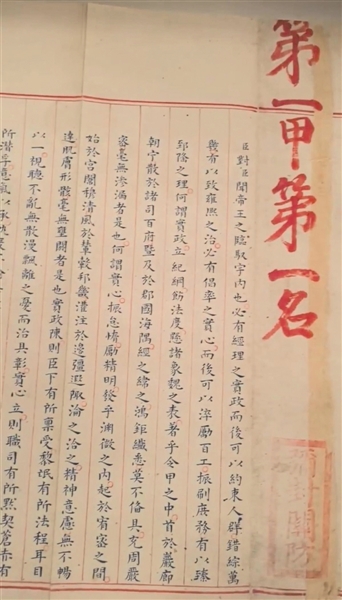 第一甲第一名
臣對臣聞帝王之臨馭宇內也必有經理之實政而後可以約束人群錯綜萬
幾有以致雍熙之治必有倡率之實心而後可以淬勵百工振刷庶務有以臻
郅隆之理何謂實政立紀綱飭法度懸諸象魏之表著乎令甲之中首於巖廊
朝宁散於諸司百府暨及於郡國海隅經之緯之鴻鉅纖悉莫不備具充周嚴
密毫無滲漏者是也何謂實心振怠惰勵精明發乎淵微之內起於宥密之間
始於宮闈穆清風於輦轂邦畿灌注於邊疆遐陬淪之洽之精神意慮無不暢
達肌膚形骸毫無壅閼者是也實政陳則臣下有所稟受黎氓有所法程耳目
以一視聽不亂無散漫飄離之憂而治具彰實心立則職司有所默契蒼赤有
所潛孚意氣以承
彌封關防